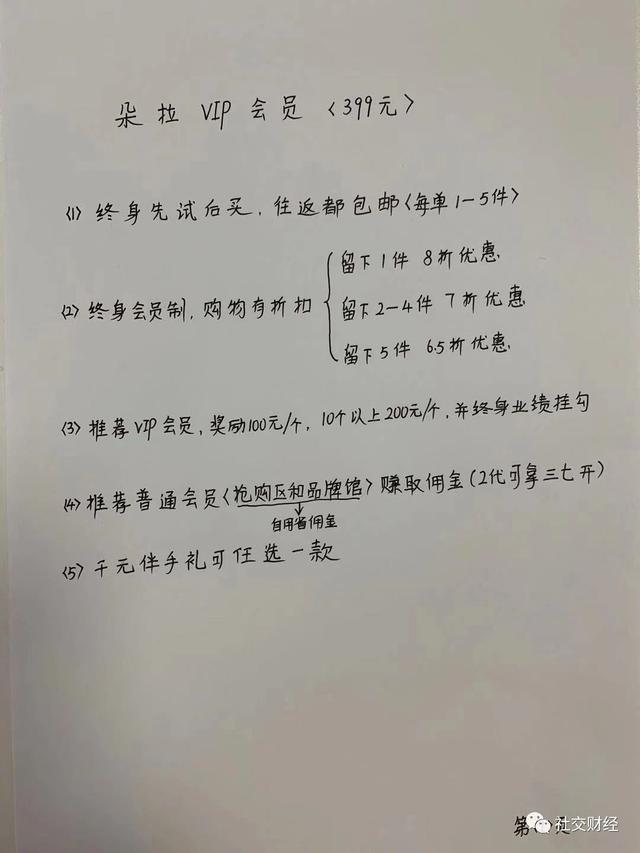 朵拉 VIP 会员〈399元〉
〈1〉终身先试后买，往返都包邮〈每单1-5件〉
留下1件 8折优惠
〈2〉终身会员制，购物有折扣
留下2-4件 7折优惠
留下5件 6.5折优惠
〈3〉推荐VIP会员，奖励100元/个，10个以上200元/个，并终身业绩挂勾
〈4〉推荐普通会员〈抢购区和品牌馆〉赚取佣金(2代可享三七开)
自用省佣金
〈5〉千元伴手礼可任选一款
第 页
社交财经